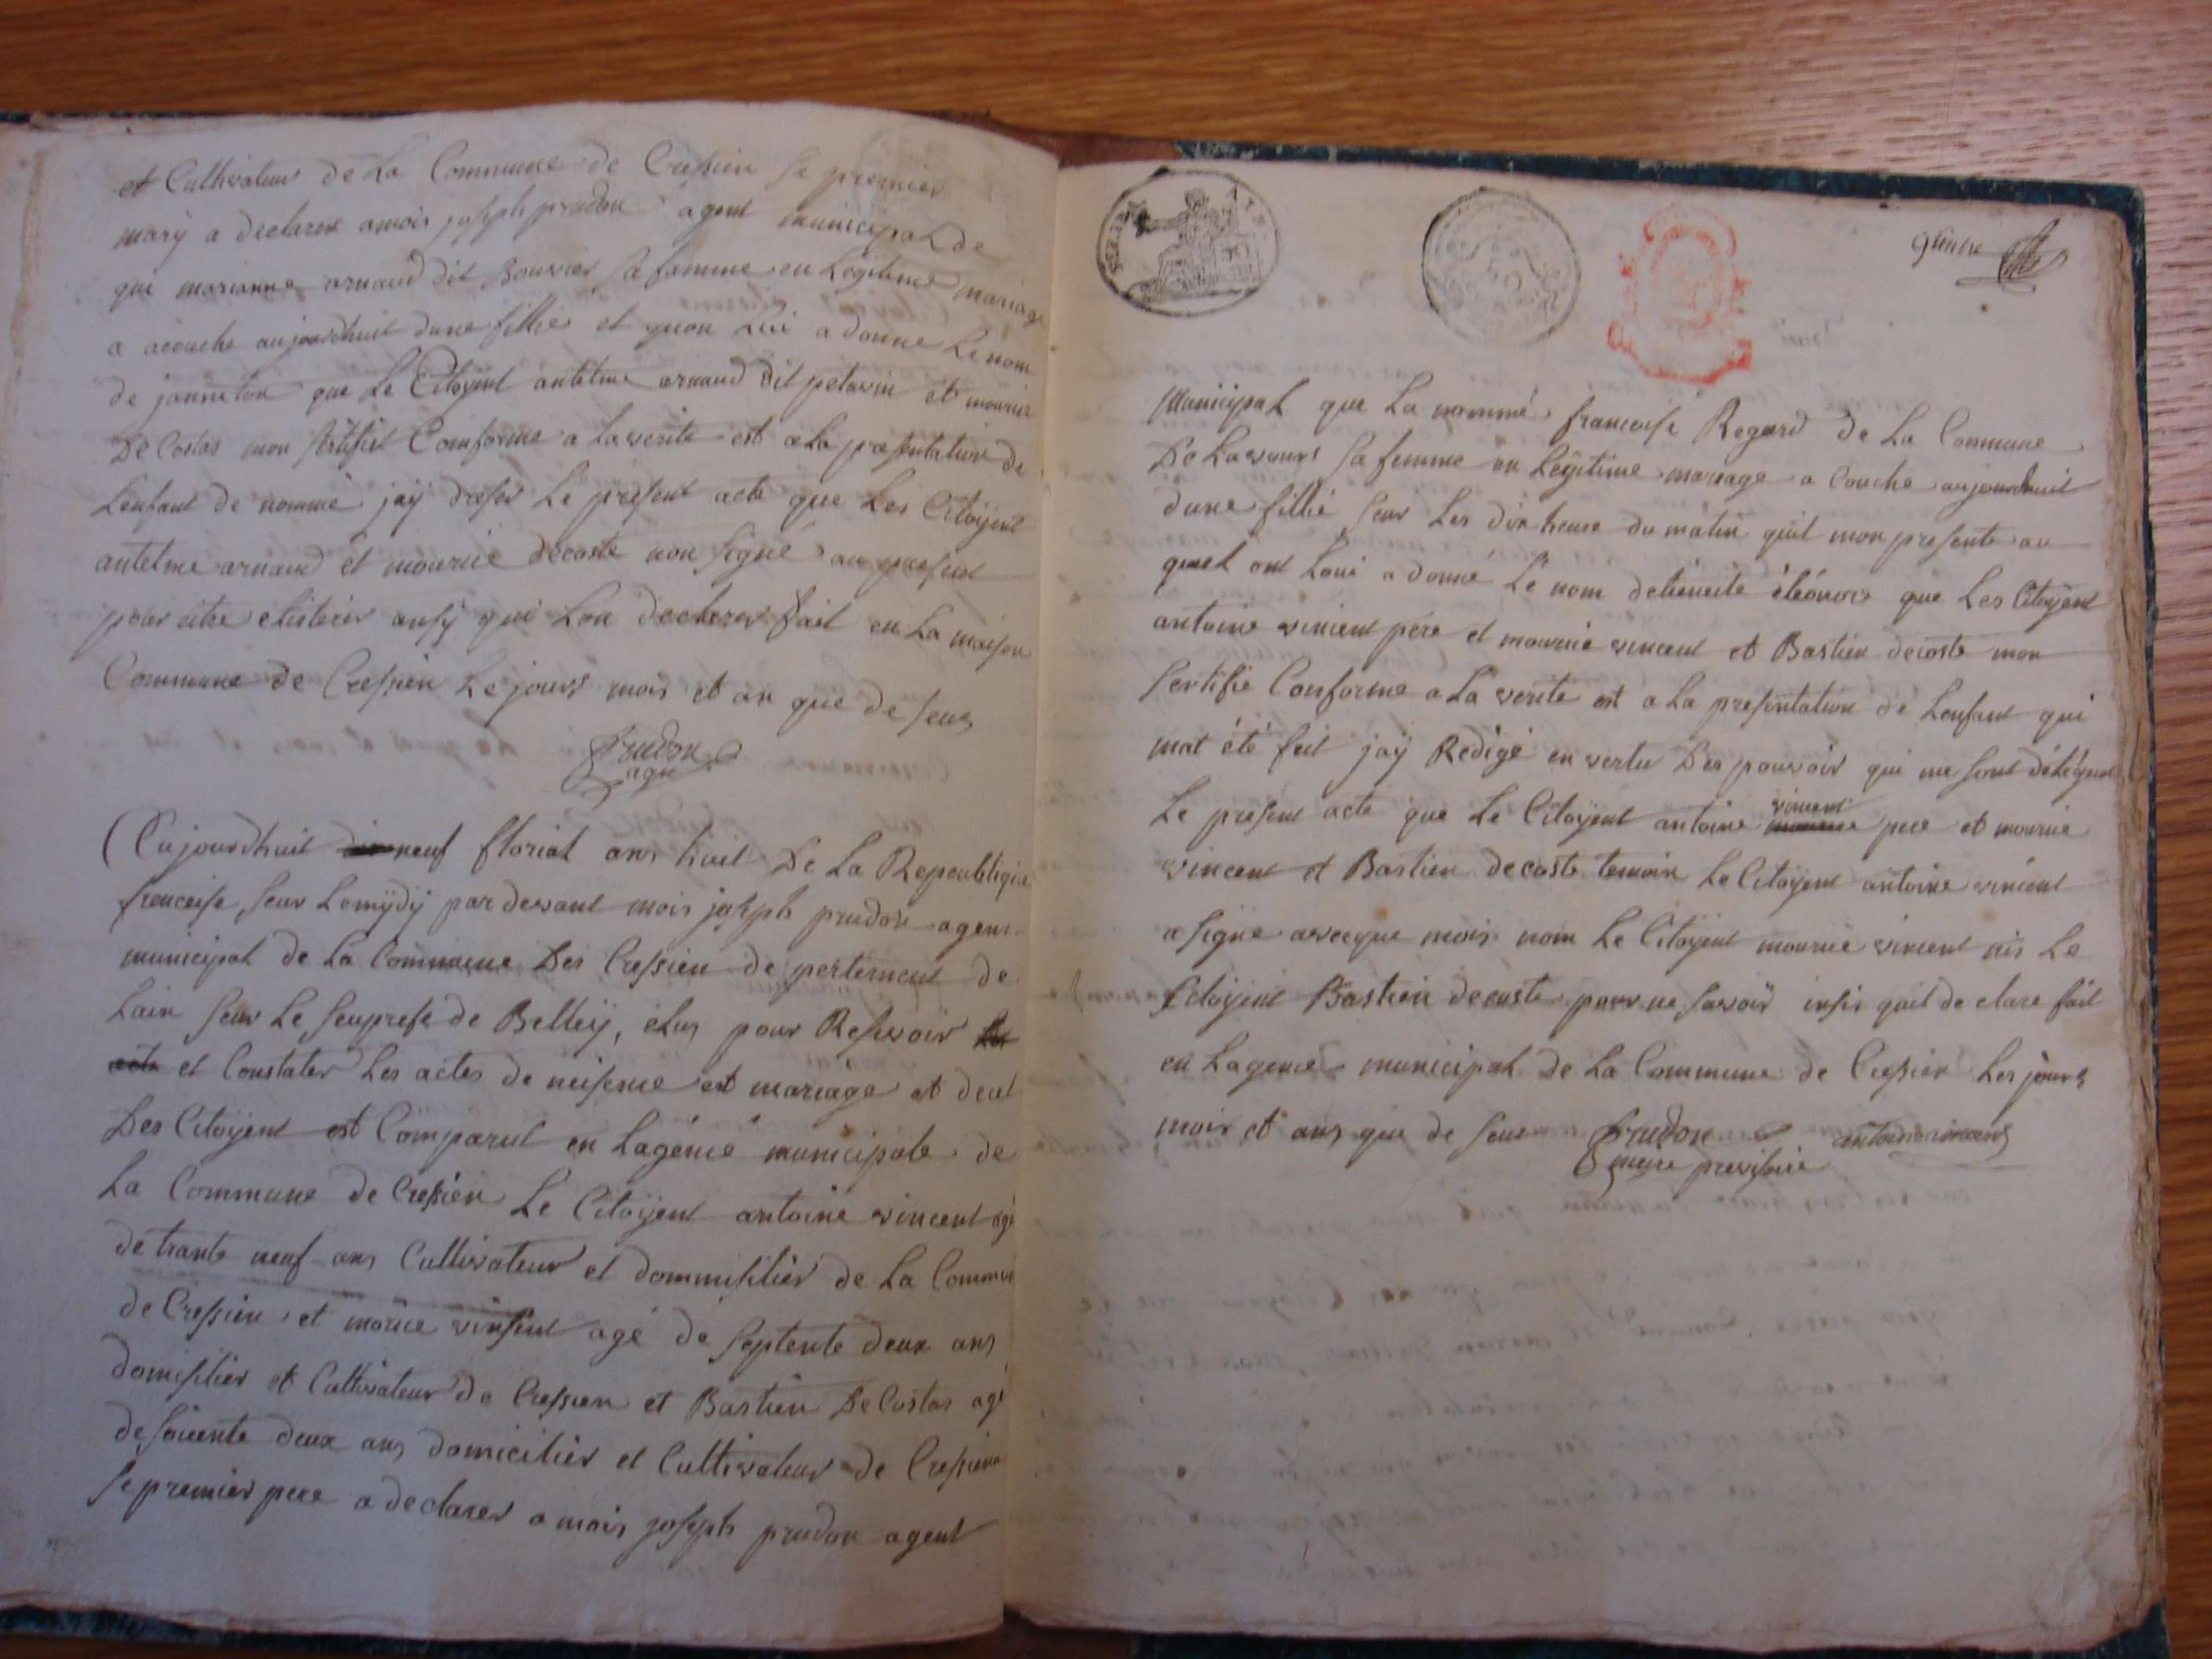 et Cultivateur de La Commune de Cressien Le premier
mary a declarer amois joseph prudon agent municipal de
que marianne arnaud dit Bouvier sa famme en Legitime mariage
a acouche aujourdhuit dune fillie et quon Lui a donne Le nom
de jannéton que Le Citoyent antelme arnaud dit petavin et mourice
De Costas mon sertifiet Comforme a laverite est a La presentation de
Lenfant de nommé jaÿ dreser Le present acte que Les Citoyent
antelme arnaud et mourice decoste non signé au present
pour aitre ansÿ qui Lon declarer fait en La maison
Commune de Cressien Le jours mois et an que de seus
Prudon
agu
Aujourdhuit neuf floriat ans huit De La Republique
françaisse, seur Lemÿdÿ par devant mois joseph prudon agent
municipal de La Commune Des Cressien de pertement de
Lain seur Le seuprefe de Belleÿ, elus pour Resevoir Les
acte et Constater Les actes de neisense est mariage et decet
Des Citoyent est Comparut en Lagence municipale de
La Commune de Cressien Le Citoyent antoine vincent agé
de trante neuf ans Cultivateur et dommisilier de La Commune
de Cressien et mouice vinsent agé de septente deux ans
domisilier et Cultivateur de Cressien et Bastien De Costas agé
de soiente deux ans domicilier et Cultivateur de Cressien
Le premier pere a declarer a mois joseph prudon agent
Municipal que La nommé francoise Regard de La Commune
De Lavours sa femme en Legitime mariage a Couche aujourdhuit
dune fillié seur Les dix heure du matin quil mon presente au
quel ont Loui a donné Le nom éléonore que Les Citoyent
antoine vincent pere et mourice vincent et Bastien decoste mon
sertifie Conforme a La verite est a La presentation de Lenfant qui
mat été fait jaÿ Redigé en vertu Des pouvoir qui me sont délégué
Le present acte que Le Citoyent antoine vincent pere et mourice
vincent et Bastien decoste temoin Le Citoyent antoine vincent
a signe avecque mois nom Le Citoyent mourice vincent nis Le
Citoyent Bastien decoste pour ne savoir insis quil de clare fait
en Lagence municipal de La Commune de Cressien Les jours
mois et ans que de seus Prudon antoine vincent
meire provisoire